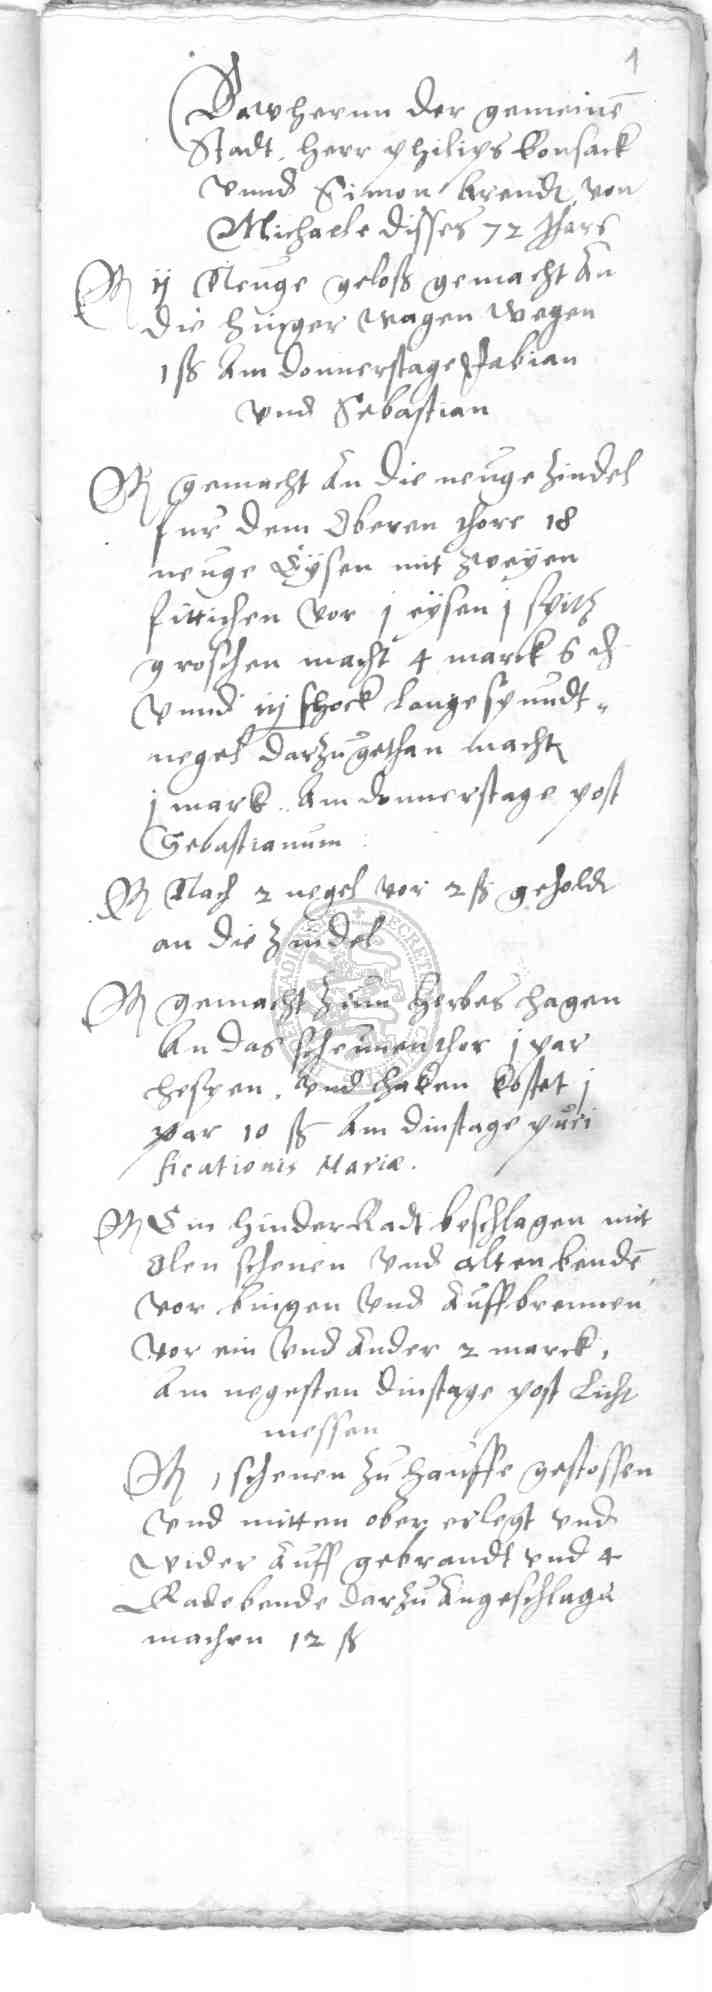 1
Bawhernn der gemeine
Stadt. Herr philips Bonsack
vnnd Simon Arendt von
Michaele disses 72 Jhars
ij Neuge geloß gemacht An
die hinger wagen wegen
1 ß Am donnerstage Fabian
vnd Sebastian
gemacht An die neuge zindel
fur dem Oberen thore 18
neuge Eysen mit zweyen
fittichen vor j eysen j spitz
groschen macht 4 marck 6 ₰
vnnd iij schock lange spundt-
negel darzu gethan macht
j mark. Am donnerstage post
Sebastianum
Nach 2 negel vor 2 ß geholdt
an die zindel
gemacht zum Herbes hagen
An das scheunenthor j par
hespen. vnd haken kostet j
par 10 ß Am dinstage puri
ficationis Mariæ.
Ein hinder Radt beschlagen mit
olen schenen vnd alten bende
vor bingen vnd Auffbrennen
vor ein vnd Ander 2 marck,
Am negesten dinstage post Licht
messen
1 schenen zu hauffe gestossen
vnd mitten ober erlegt vnd
wider Auff gebrandt vnd 4
Radebende darzu Angeschlage
machen 12 ß